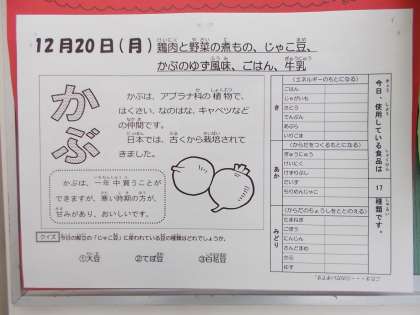 12月20日(月) 鶏肉と野菜の煮もの、じゃこ豆、
かぶのゆず風味、ごはん、牛乳
かぶ
かぶは、アブラナ科の植物で、
はくさい、なのはな、キャベツなど
の仲間です。
日本では、古くから栽培されて
きました。
かぶは、一年中買うことが
できますが、寒い時期の方が、
甘みがあり、おいしいです。
クイズ 今日の給食の「じゃこ豆」に使われている豆の種類はどれでしょうか。
①大豆 ②そら豆 ③白花豆
今日、使用している食品は 17 種類です。
き
(エネルギーのもとになる)
ごはん
じゃがいも
さとう
でんぷん
あぶら
いりごま
あか
(からだをつくるもとになる)
ぎゅうにゅう
けいにく
けずりぶし
だいず
ちりめんじゃこ
みどり
(からだのちょうしをととのえる)
たまねぎ
ごぼう
にんじん
さんどまめ
かぶ
ゆず